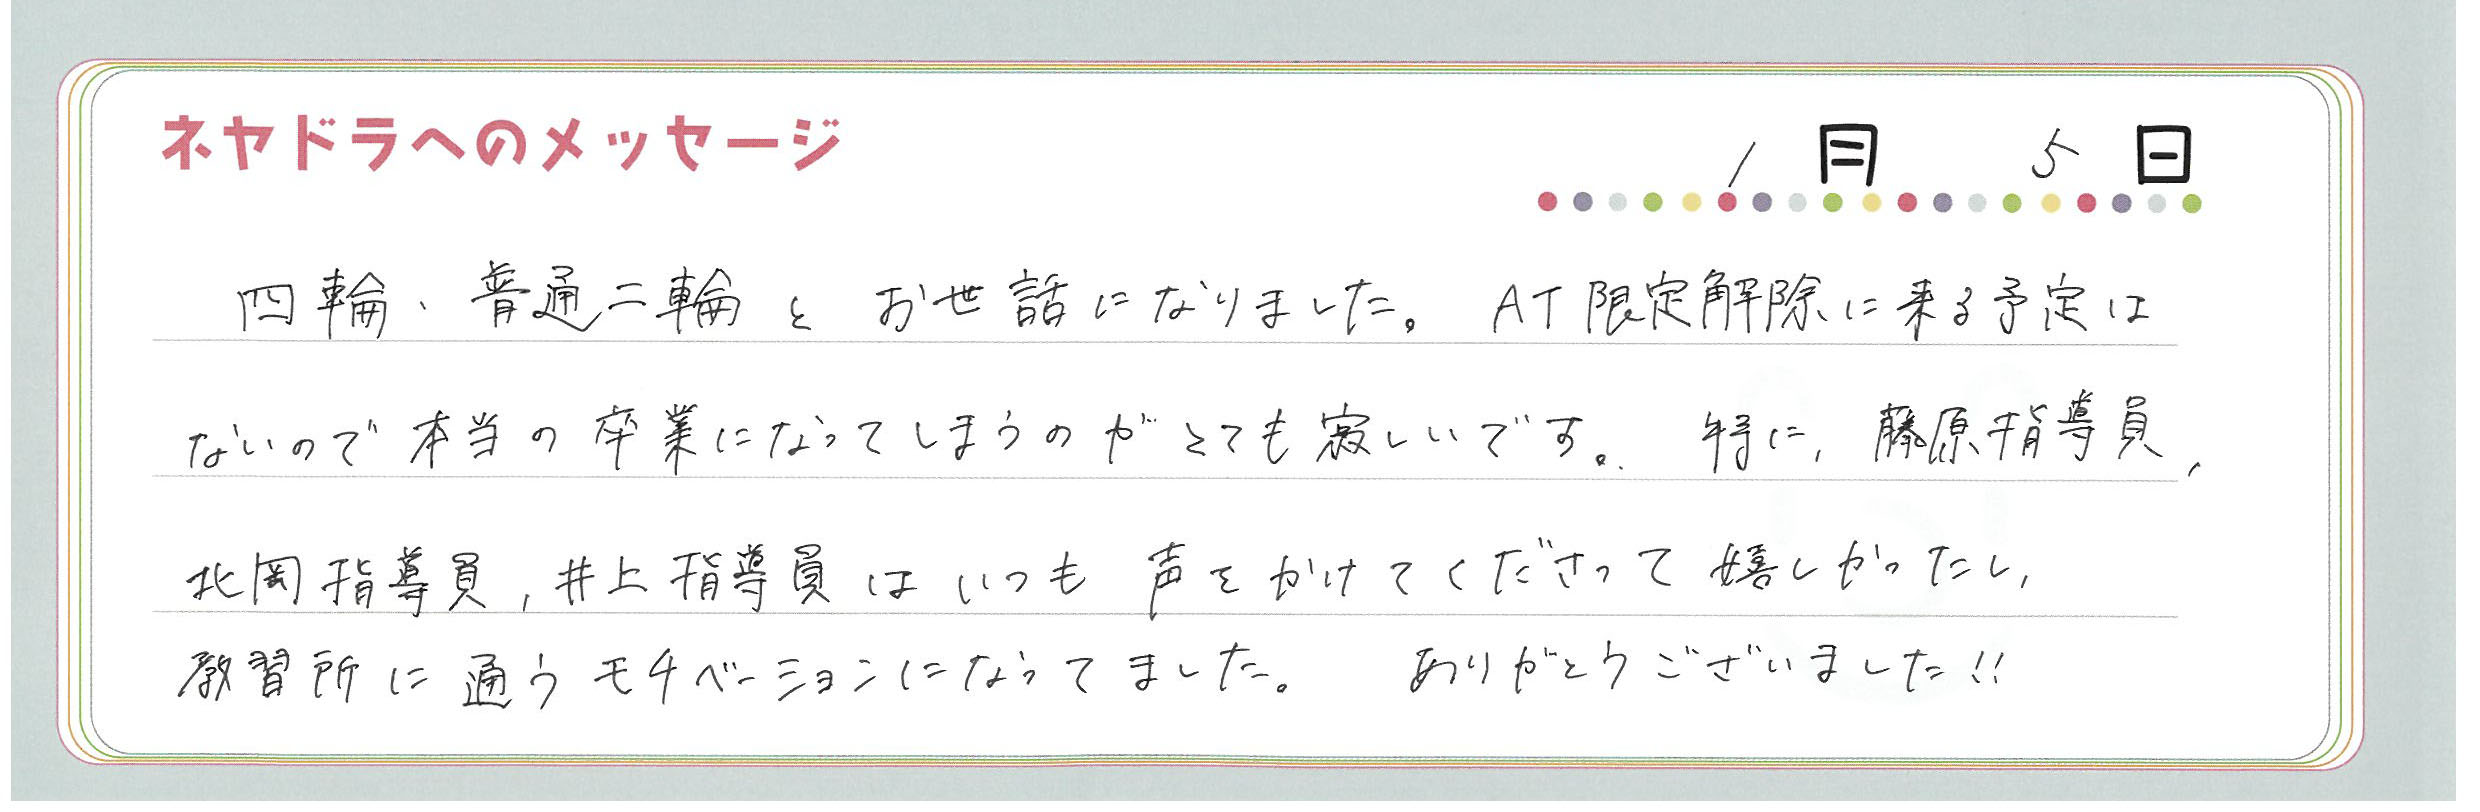 ネヤドラへのメッセージ
1月 5日
四輪、普通二輪とお世話になりました。AT限定解除に来る予定は
ないので本当の卒業になってしまうのがとても寂しいです。特に、藤原指導員、
北岡指導員、井上指導員はいつも声をかけてくださって嬉しかったし、
教習所に通うモチベーションになってました。 ありがとうございました!!